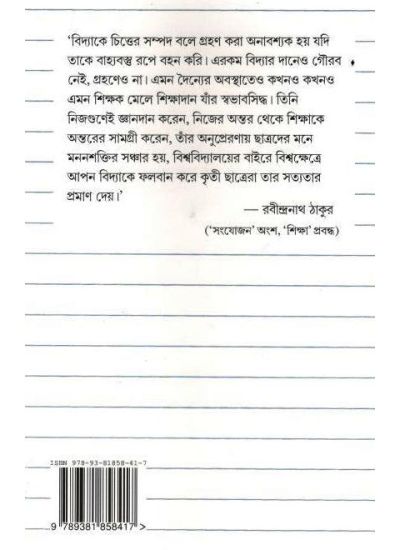 'বিদ্যাকে চিত্তের সম্পদ বলে গ্রহণ করা অনাবশ্যক হয় যদি
তাকে বাহ্যবস্তু রূপে বহন করি। এরকম বিদ্যার দানেও গৌরব
নেই, গ্রহণেও না। এমন দৈন্যের অবস্থাতেও কখনও কখনও
এমন শিক্ষক মেলে শিক্ষাদান যাঁর স্বভাবসিদ্ধ। তিনি
নিজগুণেই জ্ঞানদান করেন, নিজের অন্তর থেকে শিক্ষাকে
অন্তরের সামগ্রী করেন, তাঁর অনুপ্রেরণায় ছাত্রদের মনে
মননশক্তির সঞ্চার হয়, বিশ্ববিদ্যালয়ের বাইরে বিশ্বক্ষেত্রে
আপন বিদ্যাকে ফলবান করে কৃতী ছাত্রেরা তার সত্যতার
প্রমাণ দেয়।'
— রবীন্দ্রনাথ ঠাকুর
('সংযোজন' অংশ, 'শিক্ষা' প্রবন্ধ)
ISBN 978-93-81858-41-7
9 789381 858417 >